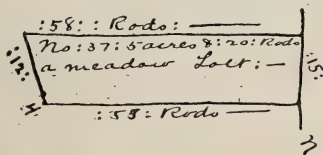 :58: : Rods:
No: 37: 5 acres 8: 20: Rods
a meadow Lott: —
:12:
:15:
:55: Rods